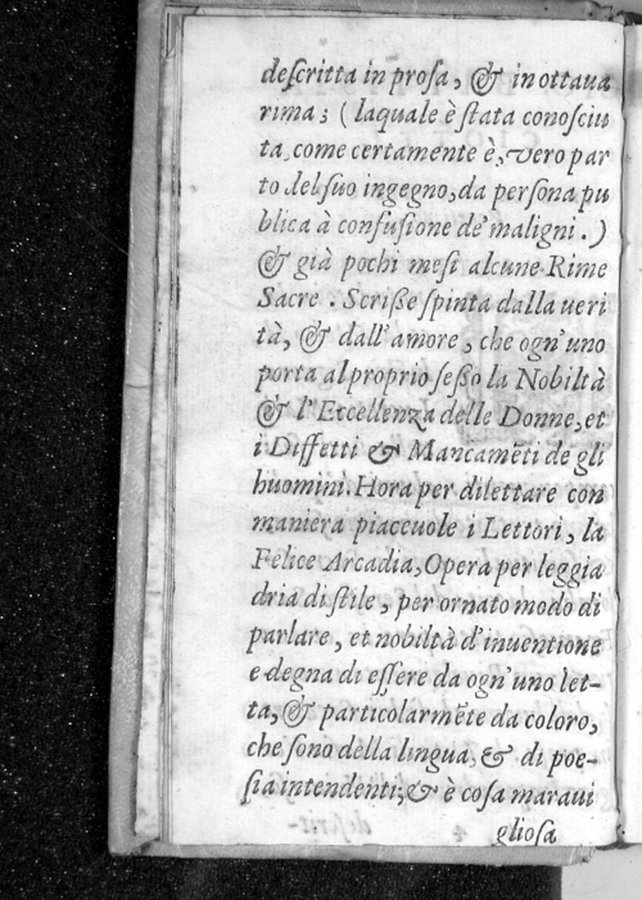 deſcritta in proſa, & in ottaua
rima; (laquale è ſtata conoſciu
ta, come certamente è, vero par
to del ſuo ingegno, da perſona pu
blica à confuſione de' maligni.)
& già pochi meſi alcune Rime
Sacre. Scriſſe ſpinta dalla ueri
tà, & dall' amore, che ogn'uno
porta al proprio ſeſſo la Nobiltà
& l' Eccellenza delle Donne, et
i Diffetti & Mancamēti de gli
huomini. Hora per dilettare con
maniera piaceuole i Lettori, la
Felice Arcadia, Opera per leggia
dria di ſtile, per ornato modo di
parlare, et nobiltà d'inuentione
e degna di eſſere da ogn'uno let-
ta, & particolarmēte da coloro,
che ſono della lingua, & di poe-
ſia intendenti; & è coſa maraui
glioſa